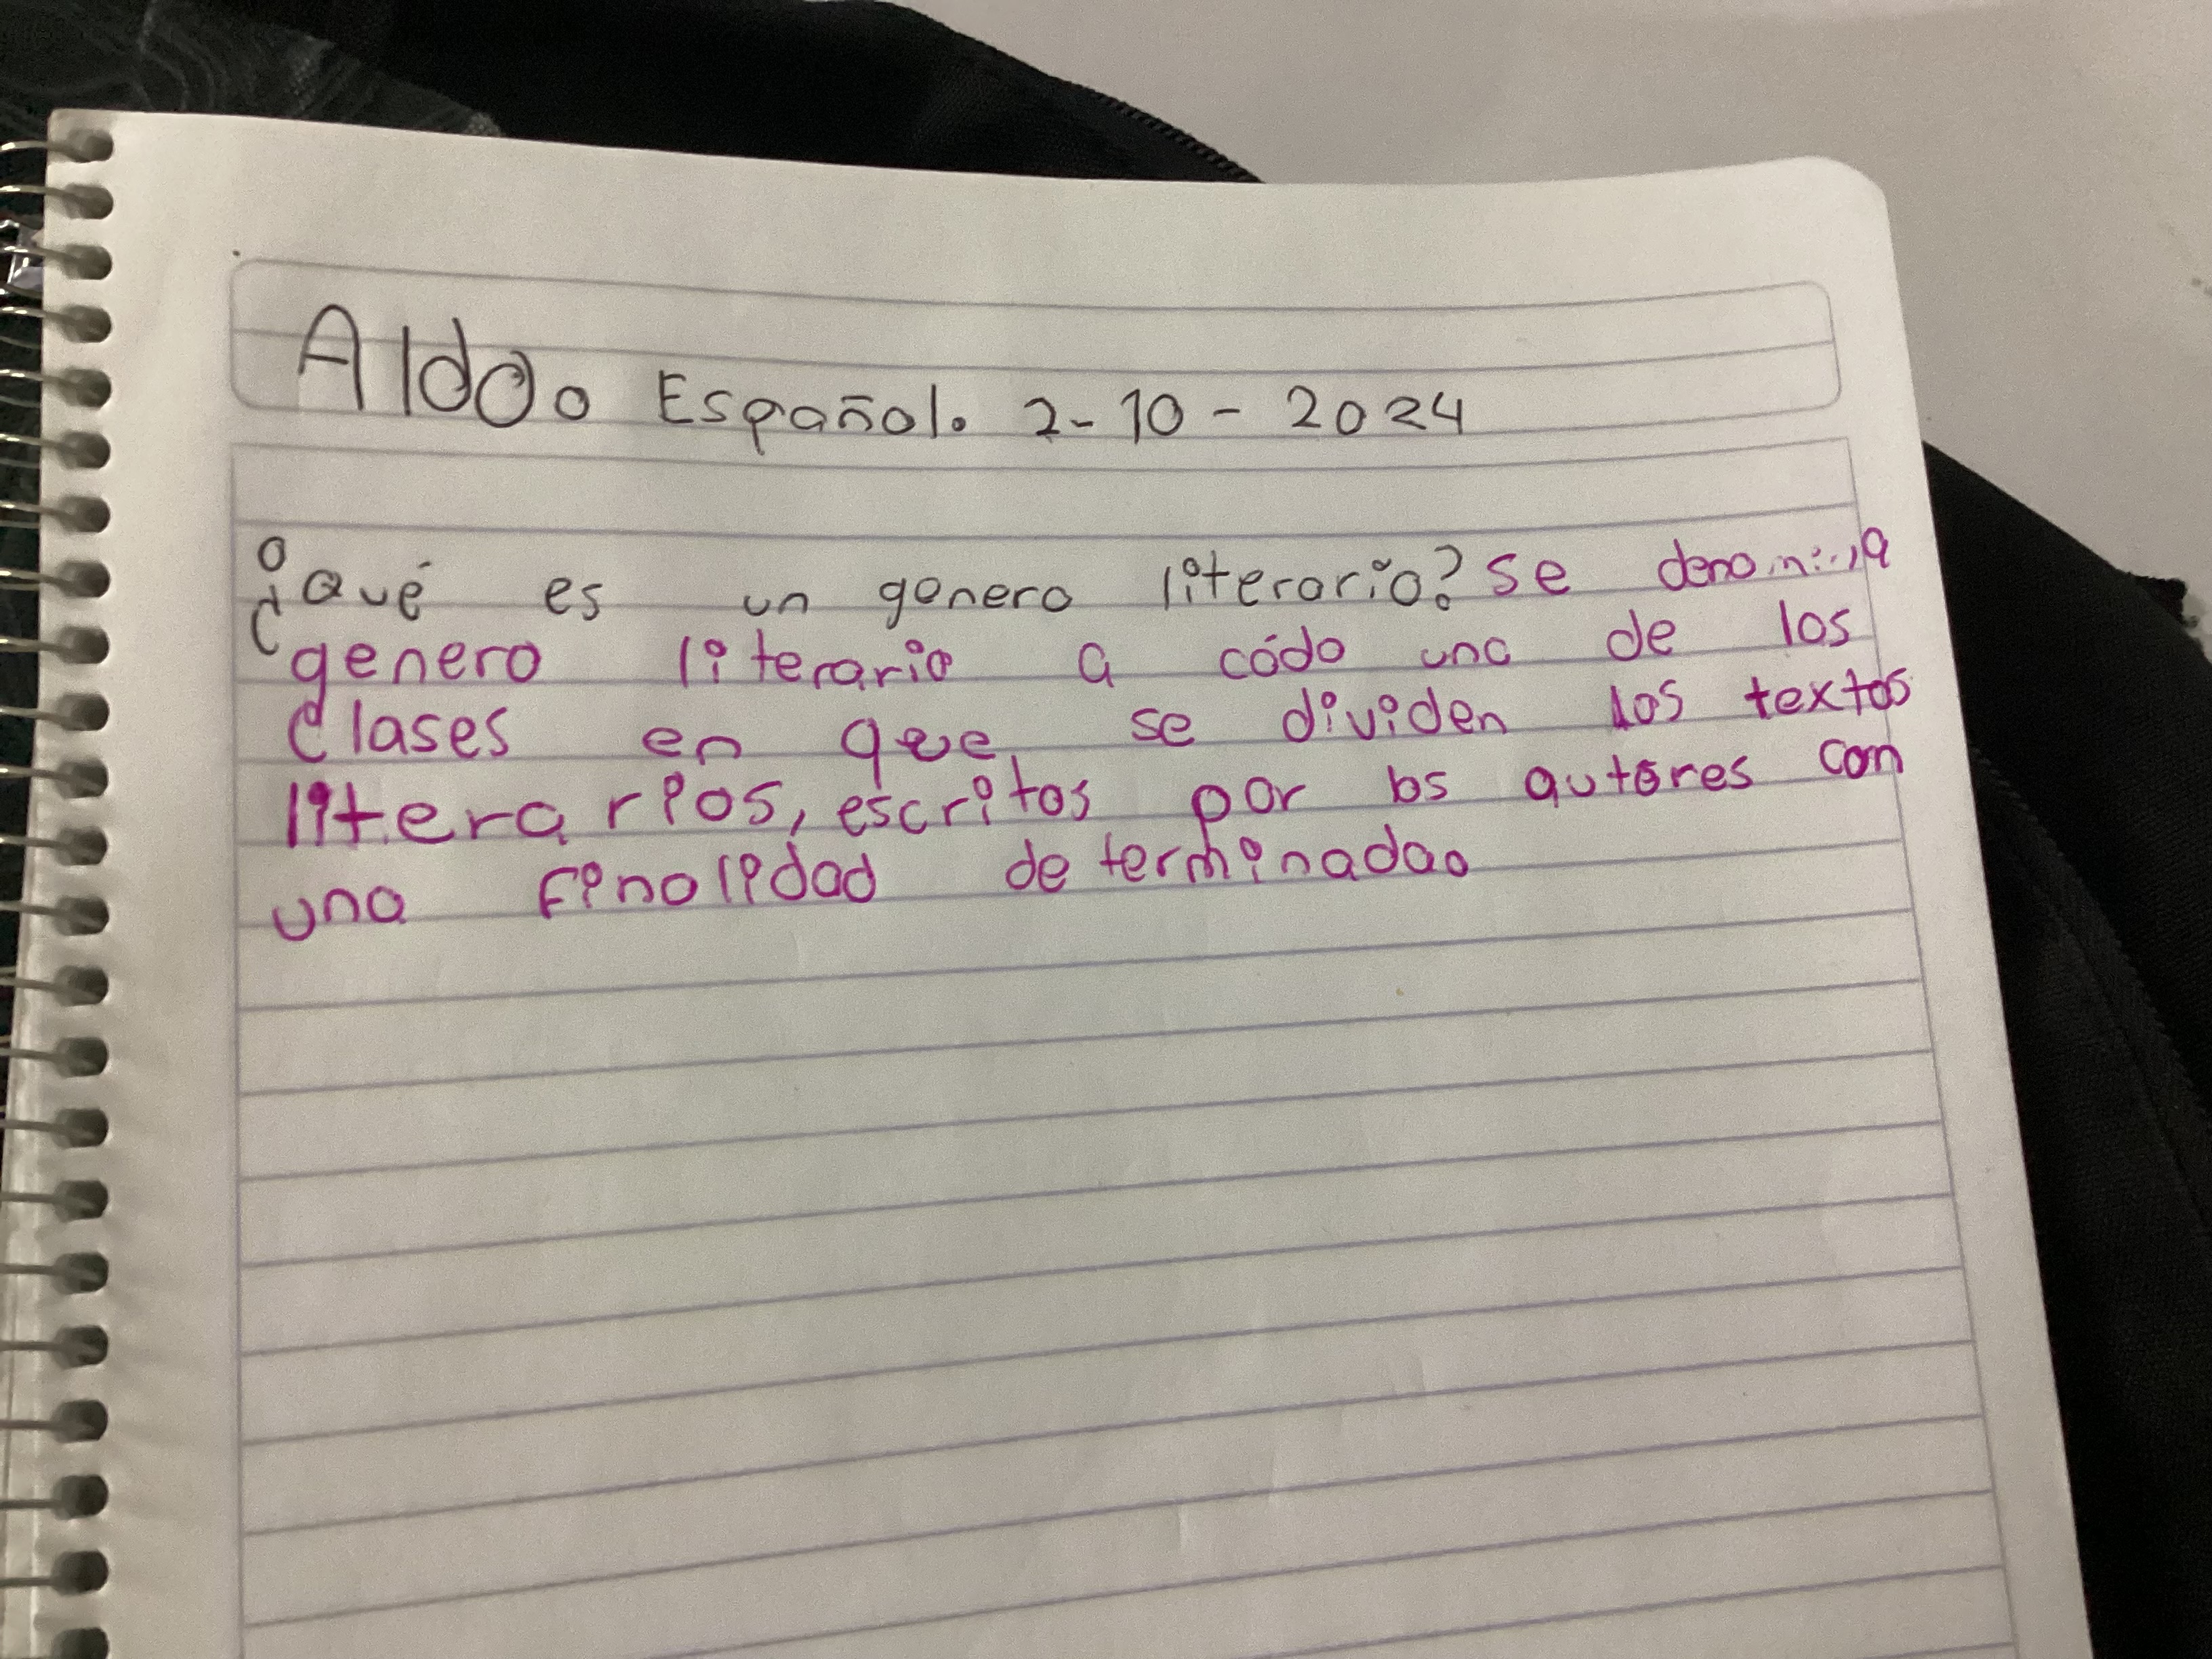 Aldo. Español. 2-10-2024
¿Qué es un genero literario? Se denomina
genero literario a cádo una de los
clases en que se dividen los textos
literarios, escritos por los autores con
una finalidad determinada.